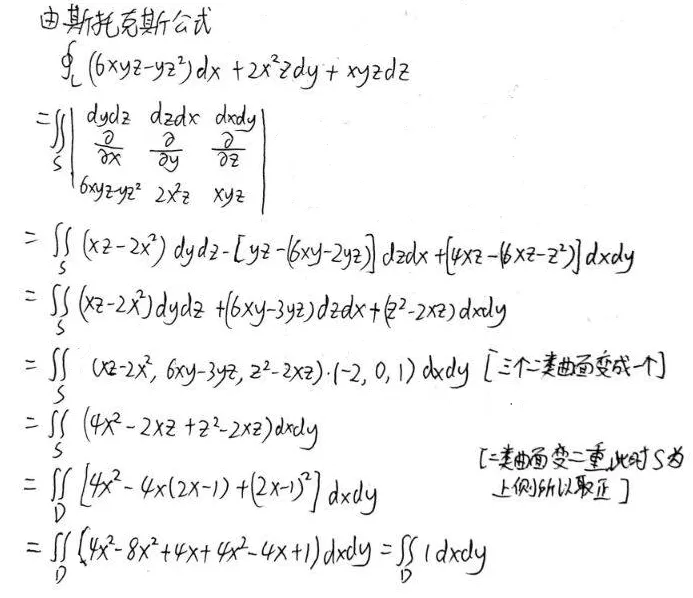 由斯托克斯公式
∮_L (6xyz-yz²)dx + 2x²zdy + xyzdz
= ∬_S | dydz dzdx dxdy
∂/∂x ∂/∂y ∂/∂z
6xyz-yz² 2x²z xyz |
= ∬_S (xz-2x²) dydz - [yz-(6xy-2yz)] dzdx + [4xz-(6xz-z²)] dxdy
= ∬_S (xz-2x²)dydz + (6xy-3yz)dzdx + (z²-2xz)dxdy
= ∬_S (xz-2x², 6xy-3yz, z²-2xz)·(-2, 0, 1) dxdy [三个二类曲面变成一个]
= ∬_S (4x²-2xz+z²-2xz)dxdy
[二类曲面变二重,此时S为
= ∬_D [4x²-4x(2x-1)+(2x-1)²] dxdy
上侧所以取正]
= ∬_D (4x²-8x²+4x+4x²-4x+1)dxdy = ∬_D 1dxdy